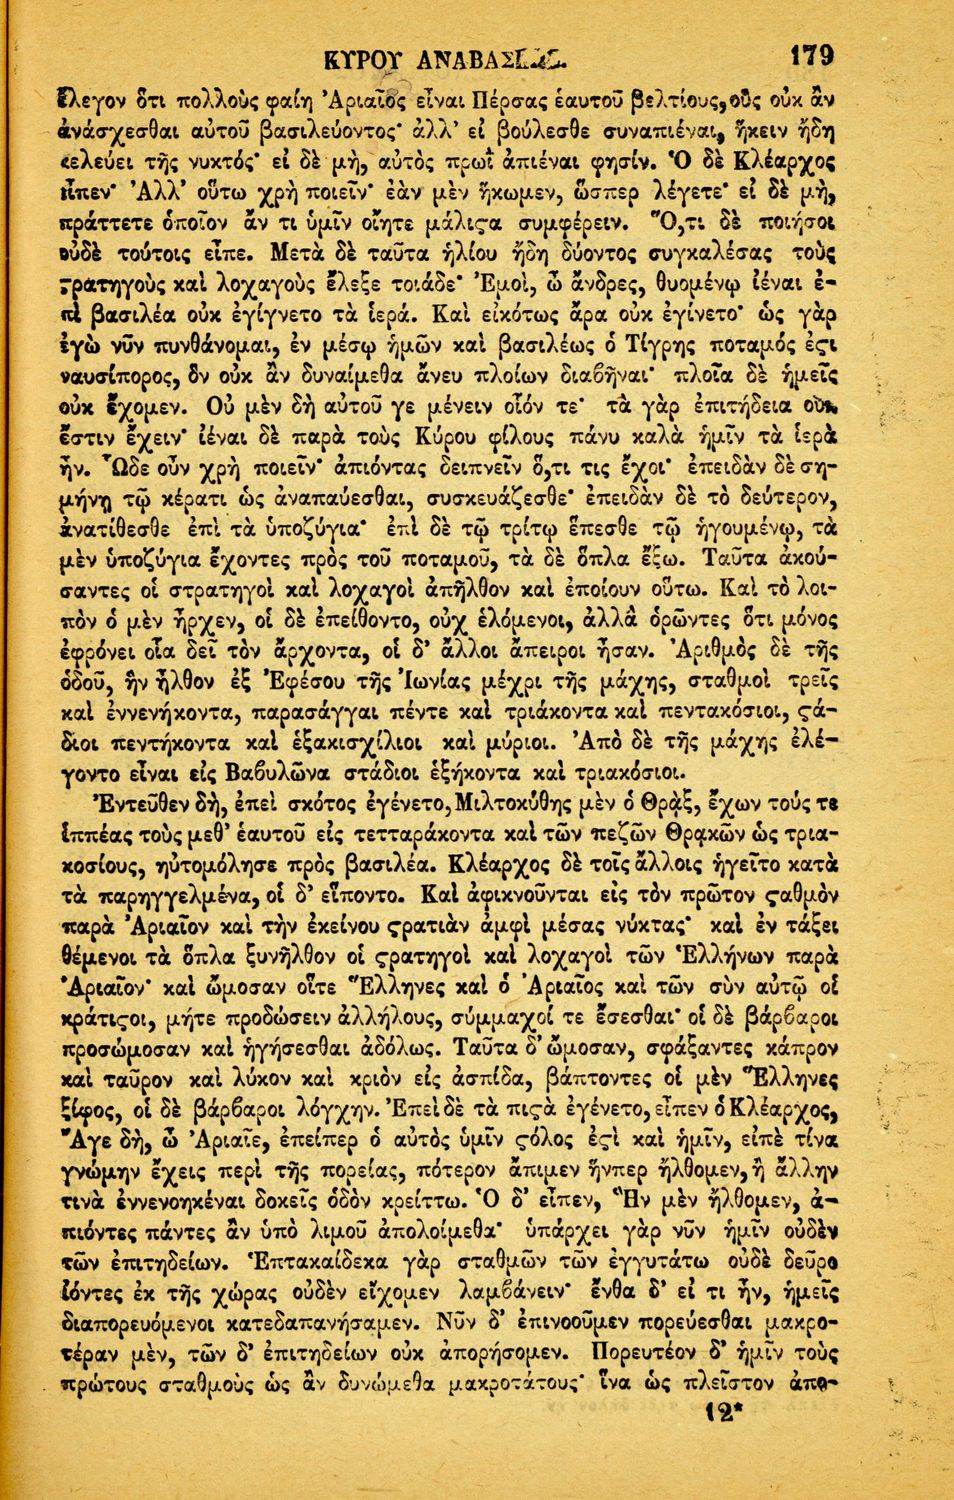 ΚΥΡΟΥ ΑΝΑΒΑΣΕΩΣ. 179
ἔλεγον ὅτι πολλοὺς φαίη Ἀριαῖος εἶναι Πέρσας ἑαυτοῦ βελτίους, οὓς οὐκ ἂν
ἀνάσχεσθαι αὐτοῦ βασιλεύοντος· ἀλλ’ εἰ βούλεσθε συναπιέναι, ἥκειν ἤδη
κελεύει τῆς νυκτός· εἰ δὲ μὴ, αὐτὸς πρωῒ ἀπιέναι φησίν. Ὁ δὲ Κλέαρχος
εἶπεν· Ἀλλ’ οὕτω χρὴ ποιεῖν· ἐὰν μὲν ἥκωμεν, ὥσπερ λέγετε· εἰ δὲ μὴ,
πράττετε ὁποῖον ἄν τι ὑμῖν οἴητε μάλιϛα συμφέρειν. Ὅ,τι δὲ ποιήσοι
οὐδὲ τούτοις εἶπε. Μετὰ δὲ ταῦτα ἡλίου ἤδη δύοντος συγκαλέσας τοὺς
ϛρατηγοὺς καὶ λοχαγοὺς ἔλεξε τοιάδε· Ἐμοὶ, ὦ ἄνδρες, θυομένῳ ἰέναι ἐ-
πὶ βασιλέα οὐκ ἐγίγνετο τὰ ἱερά. Καὶ εἰκότως ἄρα οὐκ ἐγίνετο· ὡς γὰρ
ἐγὼ νῦν πυνθάνομαι, ἐν μέσῳ ἡμῶν καὶ βασιλέως ὁ Τίγρης ποταμός ἐϛι
ναυσίπορος, ὃν οὐκ ἂν δυναίμεθα ἄνευ πλοίων διαβῆναι· πλοῖα δὲ ἡμεῖς
οὐκ ἔχομεν. Οὐ μὲν δὴ αὐτοῦ γε μένειν οἷόν τε· τὰ γὰρ ἐπιτήδεια οὐκ
ἔστιν ἔχειν· ἰέναι δὲ παρὰ τοὺς Κύρου φίλους πάνυ καλὰ ἡμῖν τὰ ἱερὰ
ἦν. Ὧδε οὖν χρὴ ποιεῖν· ἀπιόντας δειπνεῖν ὅ,τι τις ἔχοι· ἐπειδὰν δὲ ση-
μήνῃ τῷ κέρατι ὡς ἀναπαύεσθαι, συσκευάζεσθε· ἐπειδὰν δὲ τὸ δεύτερον,
ἀνατίθεσθε ἐπὶ τὰ ὑποζύγια· ἐπὶ δὲ τῷ τρίτῳ ἕπεσθε τῷ ἡγουμένῳ, τὰ
μὲν ὑποζύγια ἔχοντες πρὸς τοῦ ποταμοῦ, τὰ δὲ ὅπλα ἔξω. Ταῦτα ἀκού-
σαντες οἱ στρατηγοὶ καὶ λοχαγοὶ ἀπῆλθον καὶ ἐποίουν οὕτω. Καὶ τὸ λοι-
πὸν ὁ μὲν ἦρχεν, οἱ δὲ ἐπείθοντο, οὐχ ἑλόμενοι, ἀλλὰ ὁρῶντες ὅτι μόνος
ἐφρόνει οἷα δεῖ τὸν ἄρχοντα, οἱ δ’ ἄλλοι ἄπειροι ἦσαν. Ἀριθμὸς δὲ τῆς
ὁδοῦ, ἣν ἦλθον ἐξ Ἐφέσου τῆς Ἰωνίας μέχρι τῆς μάχης, σταθμοὶ τρεῖς
καὶ ἐννενήκοντα, παρασάγγαι πέντε καὶ τριάκοντα καὶ πεντακόσιοι, ϛά-
διοι πεντήκοντα καὶ ἑξακισχίλιοι καὶ μύριοι. Ἀπὸ δὲ τῆς μάχης ἐλέ-
γοντο εἶναι εἰς Βαβυλῶνα στάδιοι ἑξήκοντα καὶ τριακόσιοι.
Ἐντεῦθεν δὴ, ἐπεὶ σκότος ἐγένετο, Μιλτοκύθης μὲν ὁ Θρᾲξ, ἔχων τούς τε
ἱππέας τοὺς μεθ’ ἑαυτοῦ εἰς τετταράκοντα καὶ τῶν πεζῶν Θρᾳκῶν ὡς τρια-
κοσίους, ηὐτομόλησε πρὸς βασιλέα. Κλέαρχος δὲ τοῖς ἄλλοις ἡγεῖτο κατὰ
τὰ παρηγγελμένα, οἱ δ’ εἵποντο. Καὶ ἀφικνοῦνται εἰς τὸν πρῶτον ϛαθμὸν
παρὰ Ἀριαῖον καὶ τὴν ἐκείνου ϛρατιὰν ἀμφὶ μέσας νύκτας· καὶ ἐν τάξει
θέμενοι τὰ ὅπλα ξυνῆλθον οἱ ϛρατηγοὶ καὶ λοχαγοὶ τῶν Ἑλλήνων παρὰ
Ἀριαῖον· καὶ ὤμοσαν οἵτε Ἕλληνες καὶ ὁ Ἀριαῖος καὶ τῶν σὺν αὐτῷ οἱ
κράτιϛοι, μήτε προδώσειν ἀλλήλους, σύμμαχοί τε ἔσεσθαι· οἱ δὲ βάρβαροι
προσώμοσαν καὶ ἡγήσεσθαι ἀδόλως. Ταῦτα δ’ ὤμοσαν, σφάξαντες κάπρον
καὶ ταῦρον καὶ λύκον καὶ κριὸν εἰς ἀσπίδα, βάπτοντες οἱ μὲν Ἕλληνες
ξίφος, οἱ δὲ βάρβαροι λόγχην. Ἐπεὶ δὲ τὰ πιϛὰ ἐγένετο, εἶπεν ὁ Κλέαρχος,
Ἄγε δὴ, ὦ Ἀριαῖε, ἐπείπερ ὁ αὐτὸς ὑμῖν ϛόλος ἐϛὶ καὶ ἡμῖν, εἰπὲ τίνα
γνώμην ἔχεις περὶ τῆς πορείας, πότερον ἄπιμεν ἥνπερ ἤλθομεν, ἢ ἄλλην
τινὰ ἐννενοηκέναι δοκεῖς ὁδὸν κρείττω. Ὁ δ’ εἶπεν, Ἣν μὲν ἤλθομεν, ἀ-
πιόντες πάντες ἂν ὑπὸ λιμοῦ ἀπολοίμεθα· ὑπάρχει γὰρ νῦν ἡμῖν οὐδὲν
τῶν ἐπιτηδείων. Ἑπτακαίδεκα γὰρ σταθμῶν τῶν ἐγγυτάτω οὐδὲ δεῦρο
ἰόντες ἐκ τῆς χώρας οὐδὲν εἴχομεν λαμβάνειν· ἔνθα δ’ εἴ τι ἦν, ἡμεῖς
διαπορευόμενοι κατεδαπανήσαμεν. Νῦν δ’ ἐπινοοῦμεν πορεύεσθαι μακρο-
τέραν μὲν, τῶν δ’ ἐπιτηδείων οὐκ ἀπορήσομεν. Πορευτέον δ’ ἡμῖν τοὺς
πρώτους σταθμοὺς ὡς ἂν δυνώμεθα μακροτάτους· ἵνα ὡς πλεῖστον ἀπο-
12*